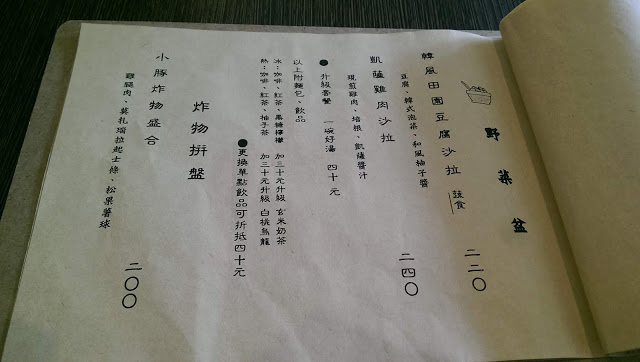 野菜盆
韓風田園豆腐沙拉 蔬食 二二〇
豆腐、韓式泡菜、和風柚子醬
凱薩雞肉沙拉 二四〇
現煎雞肉、培根、凱薩醬汁
●升級套餐 一碗好湯 四十元
以上附麵包、飲品
冰：咖啡、紅茶、黑糖檸檬 加三十元升級 玄米奶茶
熱：咖啡、紅茶、柚子茶 加三十元升級 白桃烏龍
●更換單點飲品可折抵四十元
炸物拼盤
小豚炸物盛合 二〇〇
雞腿肉、莫札瑞拉起士條、松果薯球